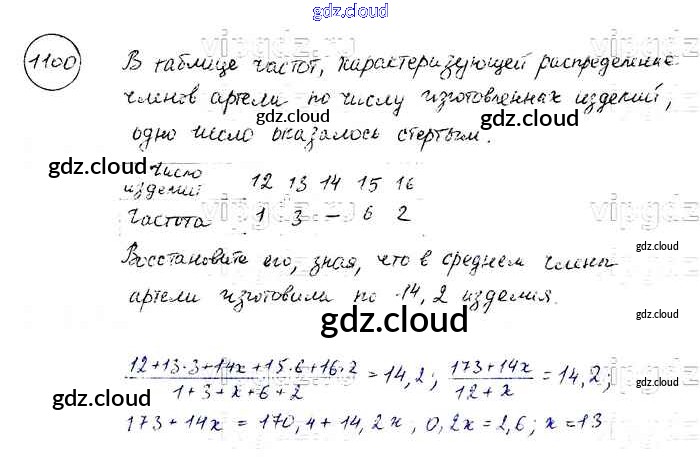 gdz.cloud
1100
В таблице частот, характеризующей распределение
членов артели по числу изготовленных изделий,
одно число оказалось стертым.
gdz.cloud
gdz.cloud
gdz.cloud
Число изделий 12 13 14 15 16
Частота 1 3 – 6 2
vipgdz
gdz.cloud
Восстановите его, зная, что в среднем члены
артели изготовили по 14,2 изделия.
gdz.cloud
gdz.cloud
(12+13·3+14x+15·6+16·2)/(1+3+x+6+2) = 14,2; (173+14x)/(12+x) = 14,2;
gdz.cloud
gdz.cloud
173+14x = 170,4+14,2x, 0,2x=2,6; x=13